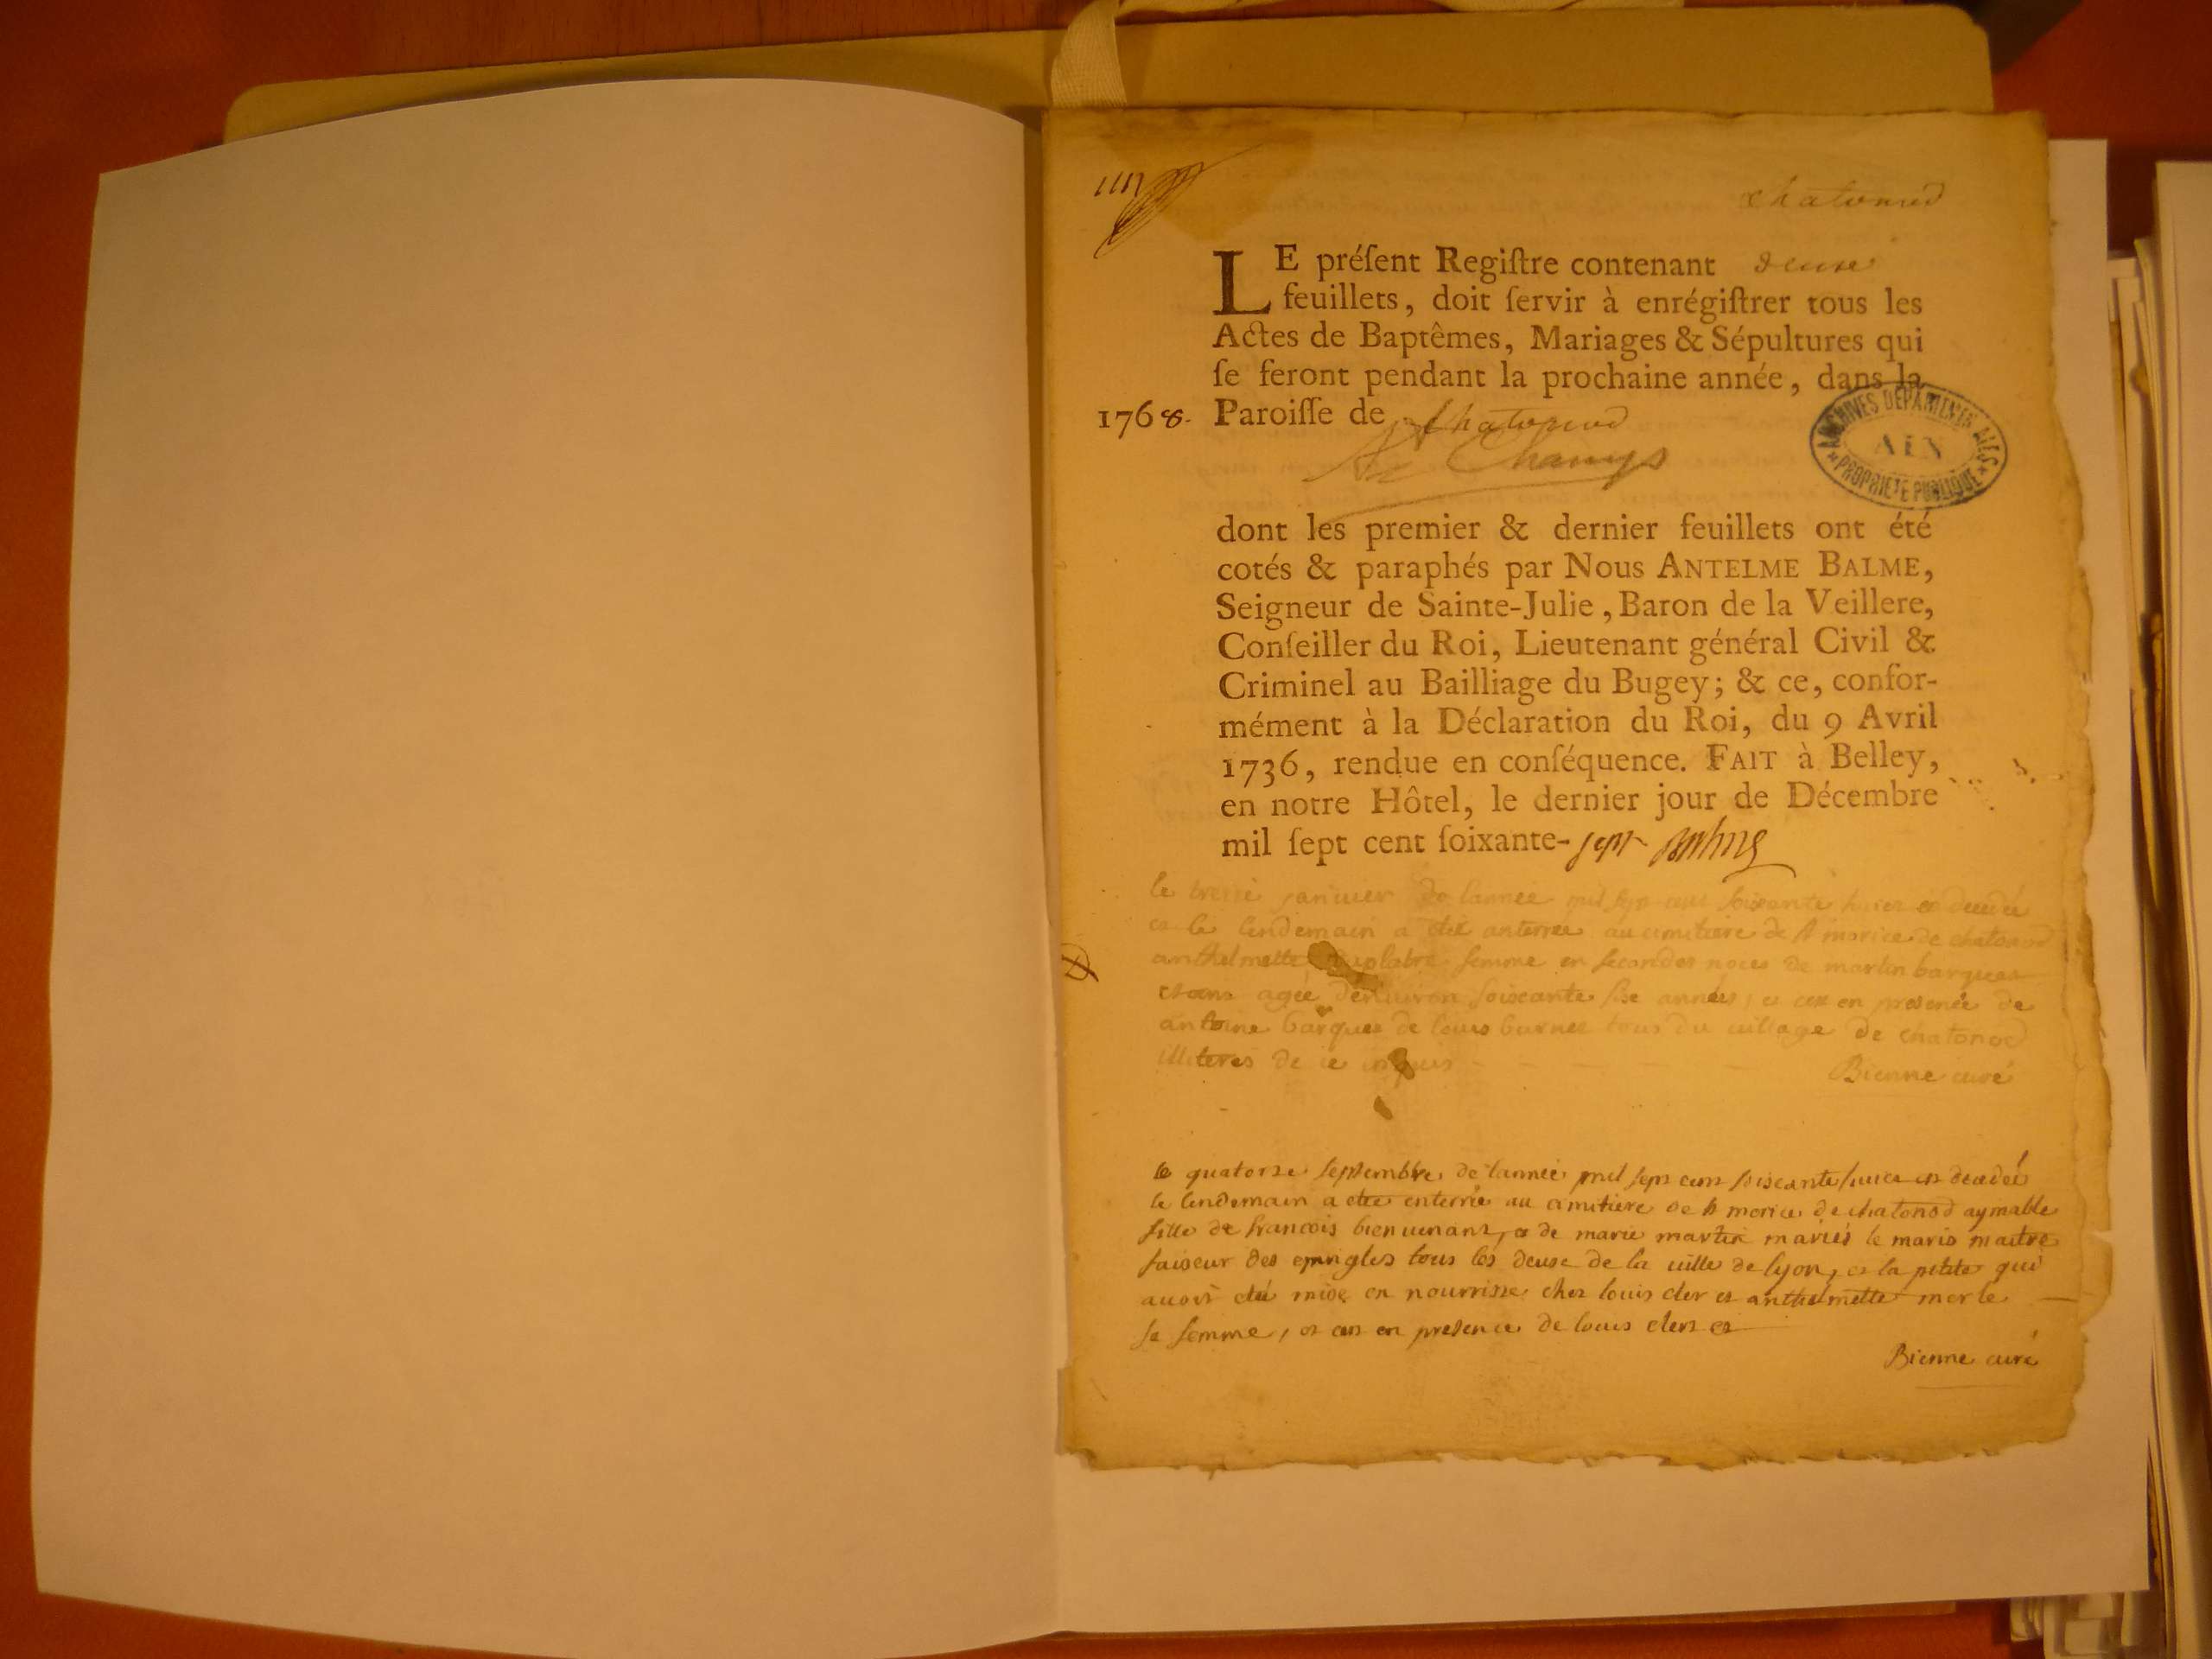 chatonod
LE préſent Regiſtre contenant deuxe
feuillets, doit ſervir à enrégiſtrer tous les
Actes de Baptêmes, Mariages & Sépultures qui
ſe feront pendant la prochaine année, dans la
1768. Paroiſſe de Chatonod
Champs
ARCHIVES DÉPARTEMENTALES
AIN
PROPRIÉTÉ PUBLIQUE
dont les premier & dernier feuillets ont été
cotés & paraphés par Nous ANTELME BALME,
Seigneur de Sainte-Julie, Baron de la Veillere,
Conſeiller du Roi, Lieutenant général Civil &
Criminel au Bailliage du Bugey; & ce, confor-
mément à la Déclaration du Roi, du 9 Avril
1736, rendue en conſéquence. FAIT à Belley,
en notre Hôtel, le dernier jour de Décembre
mil ſept cent ſoixante-sept Balme
le janvier de lannée mil sept cent soixante huict est decedée
et le lendemain a eté anterrée au cimitiere de st morice de chatonod
anthelmette femme en secondes noces de martin barquet
agée denuiron soixante années, et ce en presence de
antoine barquet de louis burnet tous du uillage de chatonod
illiteres de ce enquis
Bienne curé
le quatorse septembre de lannée mil sept cent soixante huict est decedée
le lendemain a eteé enterrée au cimitiere de st morice de chatonod aymable
fille de francois bienuenant, et de marie martin mariés le maris maitre
faiseur des epingles tous les deuse de la uille de lyon, et la petite qui
auoit eté mise en nourrisse chez louis cler et anthelmette merle
sa femme, et ce en presence de louis clert et
Bienne curé